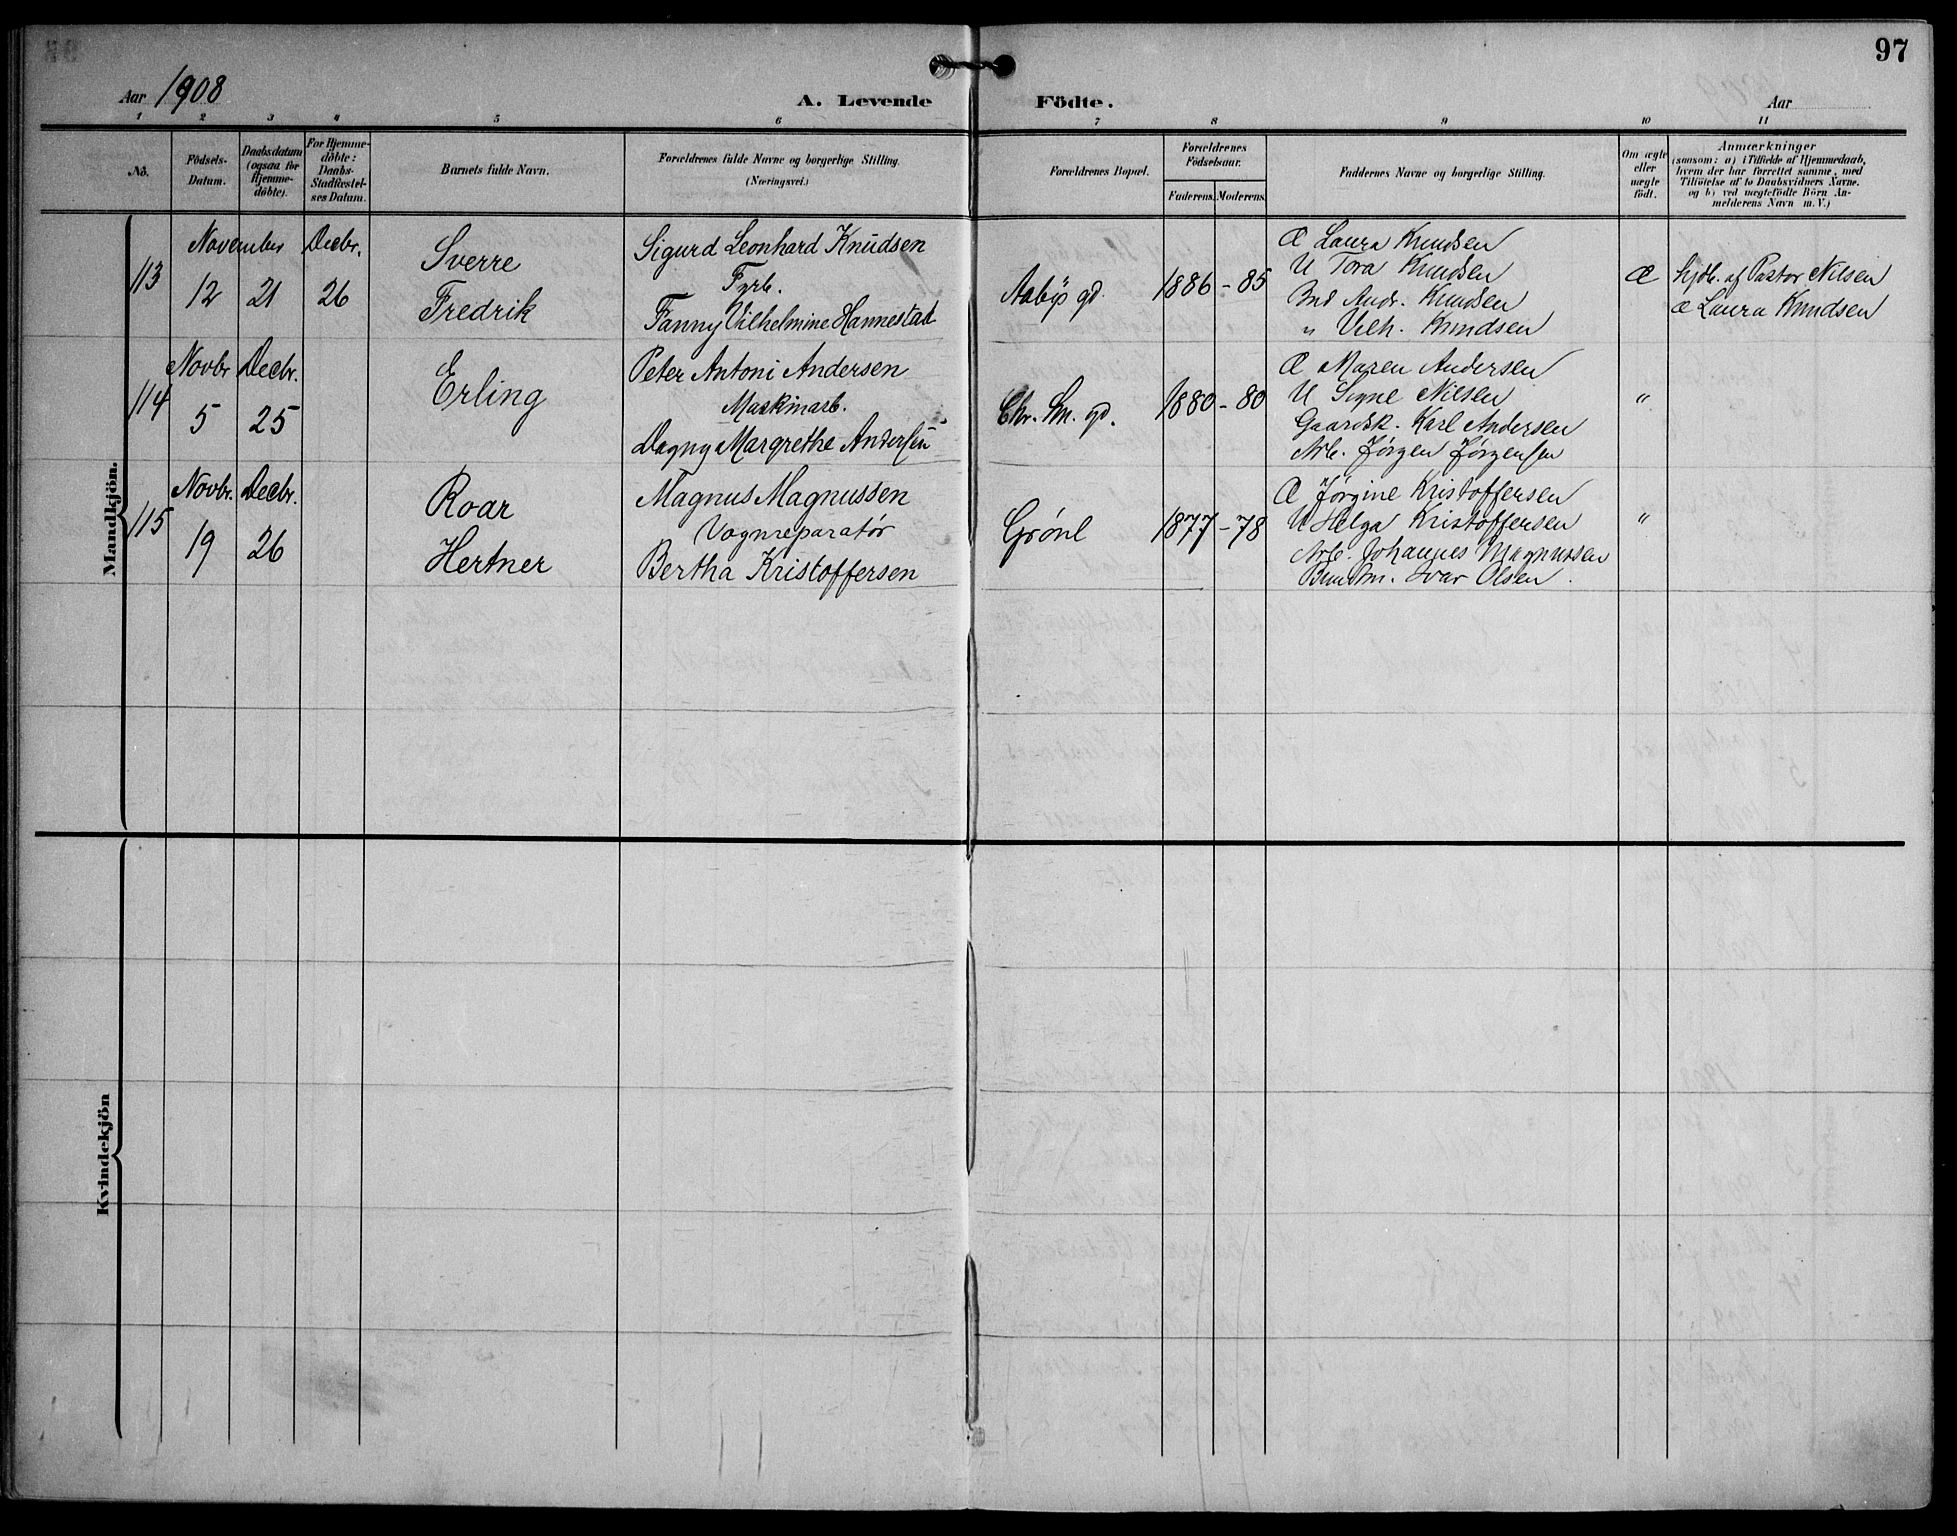 97
Aar 1908
A. Levende Födte.
Aar
1 2 3 4 5 6 7 8 9 10 11
No.
Födsels-Datum.
Daabsdatum (ogsaa for Hjemmedöbte).
For Hjemmedöbte: Daabs-Stadfæstelses Datum.
Barnets fulde Navn.
Forældrenes fulde Navne og borgerlige Stilling. (Næringsvei.)
Forældrenes Bopæl.
Forældrenes Födselsaar.
Faderens. Moderens.
Faddernes Navne og borgerlige Stilling.
Om ægte eller uægte födt.
Anmærkninger
(saasom: a) i Tilfælde af Hjemmedaab,
hvem der har forrettet samme, med
Tilföielse af to Daabsvidners Navne.
og b) ved uægtefödte Börn An-
melderens Navn m. V.)
Mandkjön.
113
November Decbr.
12 21 26
Sverre
Fredrik
Sigurd Leonhard Knudsen
Fyrb.
Fanny Vilhelmine Hannestad
Aabÿ gd.
1886 - 85
Æ Laura Knudsen
U Tora Knudsen
Bud Andr. Knudsen
" Vilh. Knudsen
Æ
hjdb. af Pastor Nilsen
æ Laura Knudsen
114
Novbr Decbr.
5 25
Erling
Peter Antoni Andersen
Maskinarb.
Dagny Margrethe Andersen
Chr. Sm. gd.
1880 - 80
Æ Maren Andersen
U Signe Nilsen
Gaardsk. Karl Andersen
Arb. Jørgen Jørgensen
"
115
Novbr. Decbr.
19 26
Roar
Hertner
Magnus Magnussen
Vognreparatør
Bertha Kristoffersen
Grønl
1877 - 78
Æ Jørgine Kristoffersen
U Helga Kristoffersen
Arb. Johannes Magnussen
Ivar Olsen
"
Kvindekjön